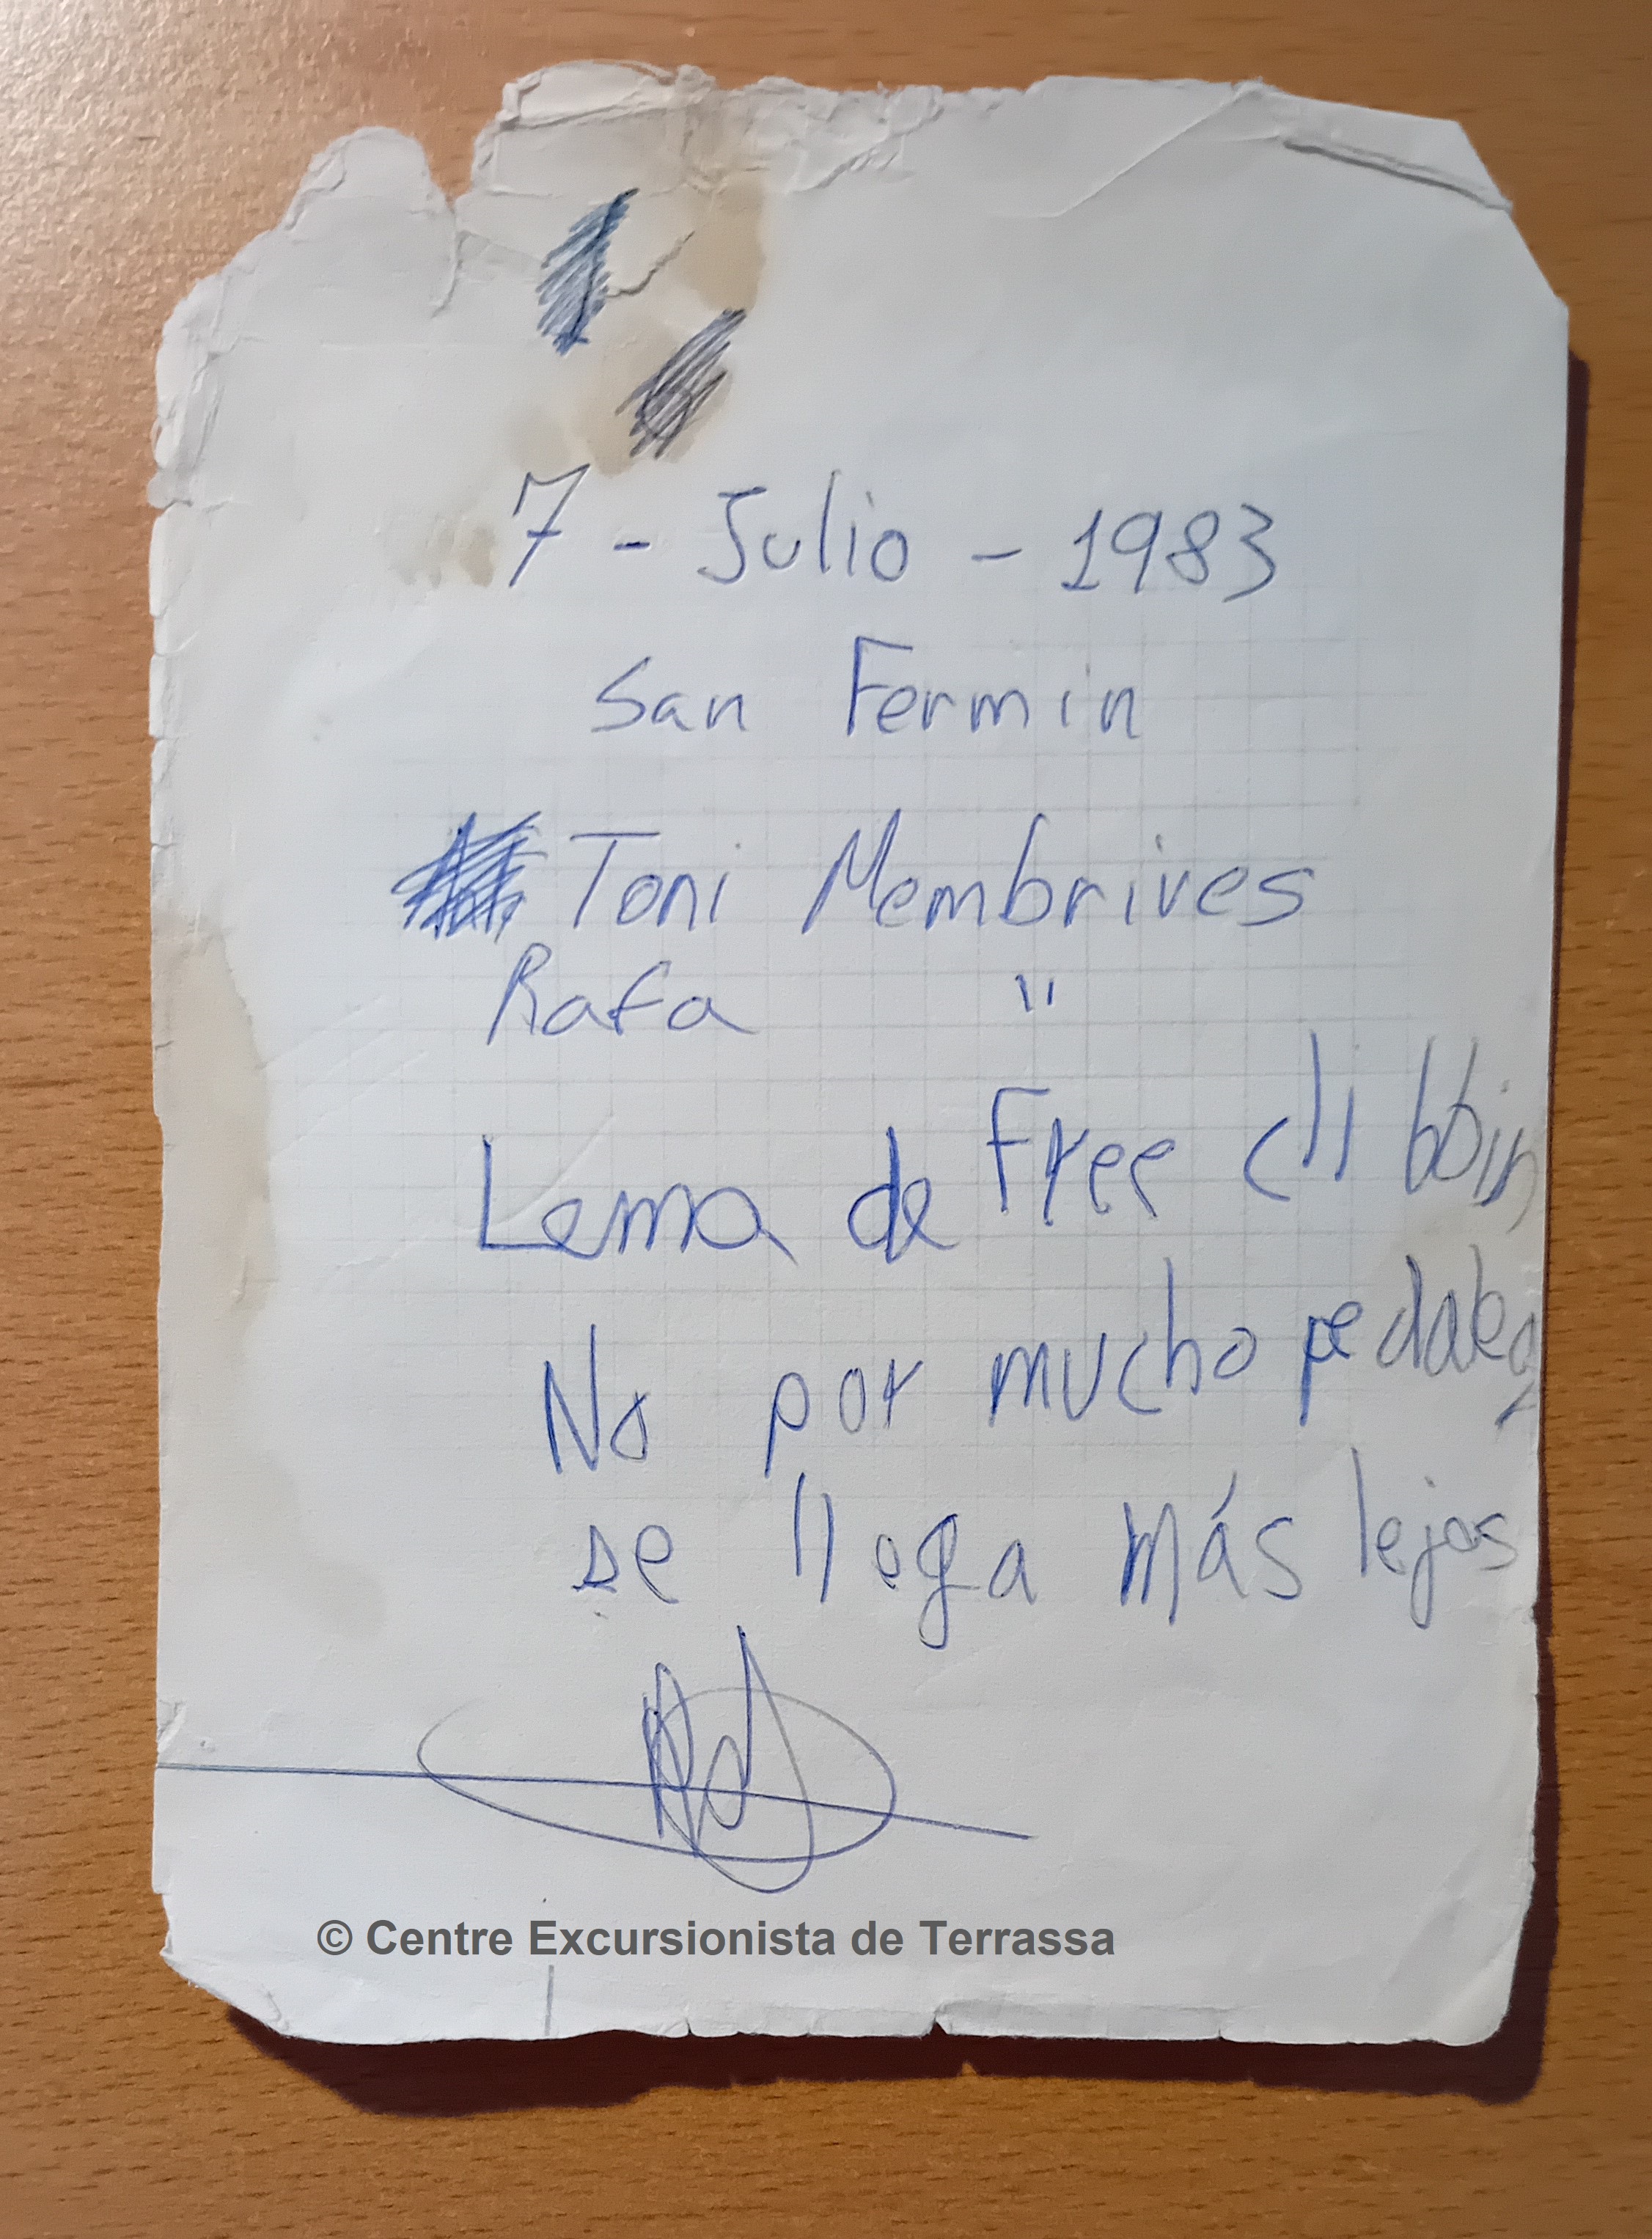 7 - Julio - 1983
San Fermin
Toni Membrives
Rafa "
Lema de Free cli bbin
No por mucho
se llega más lejos
© Centre Excursionista de Terrassa